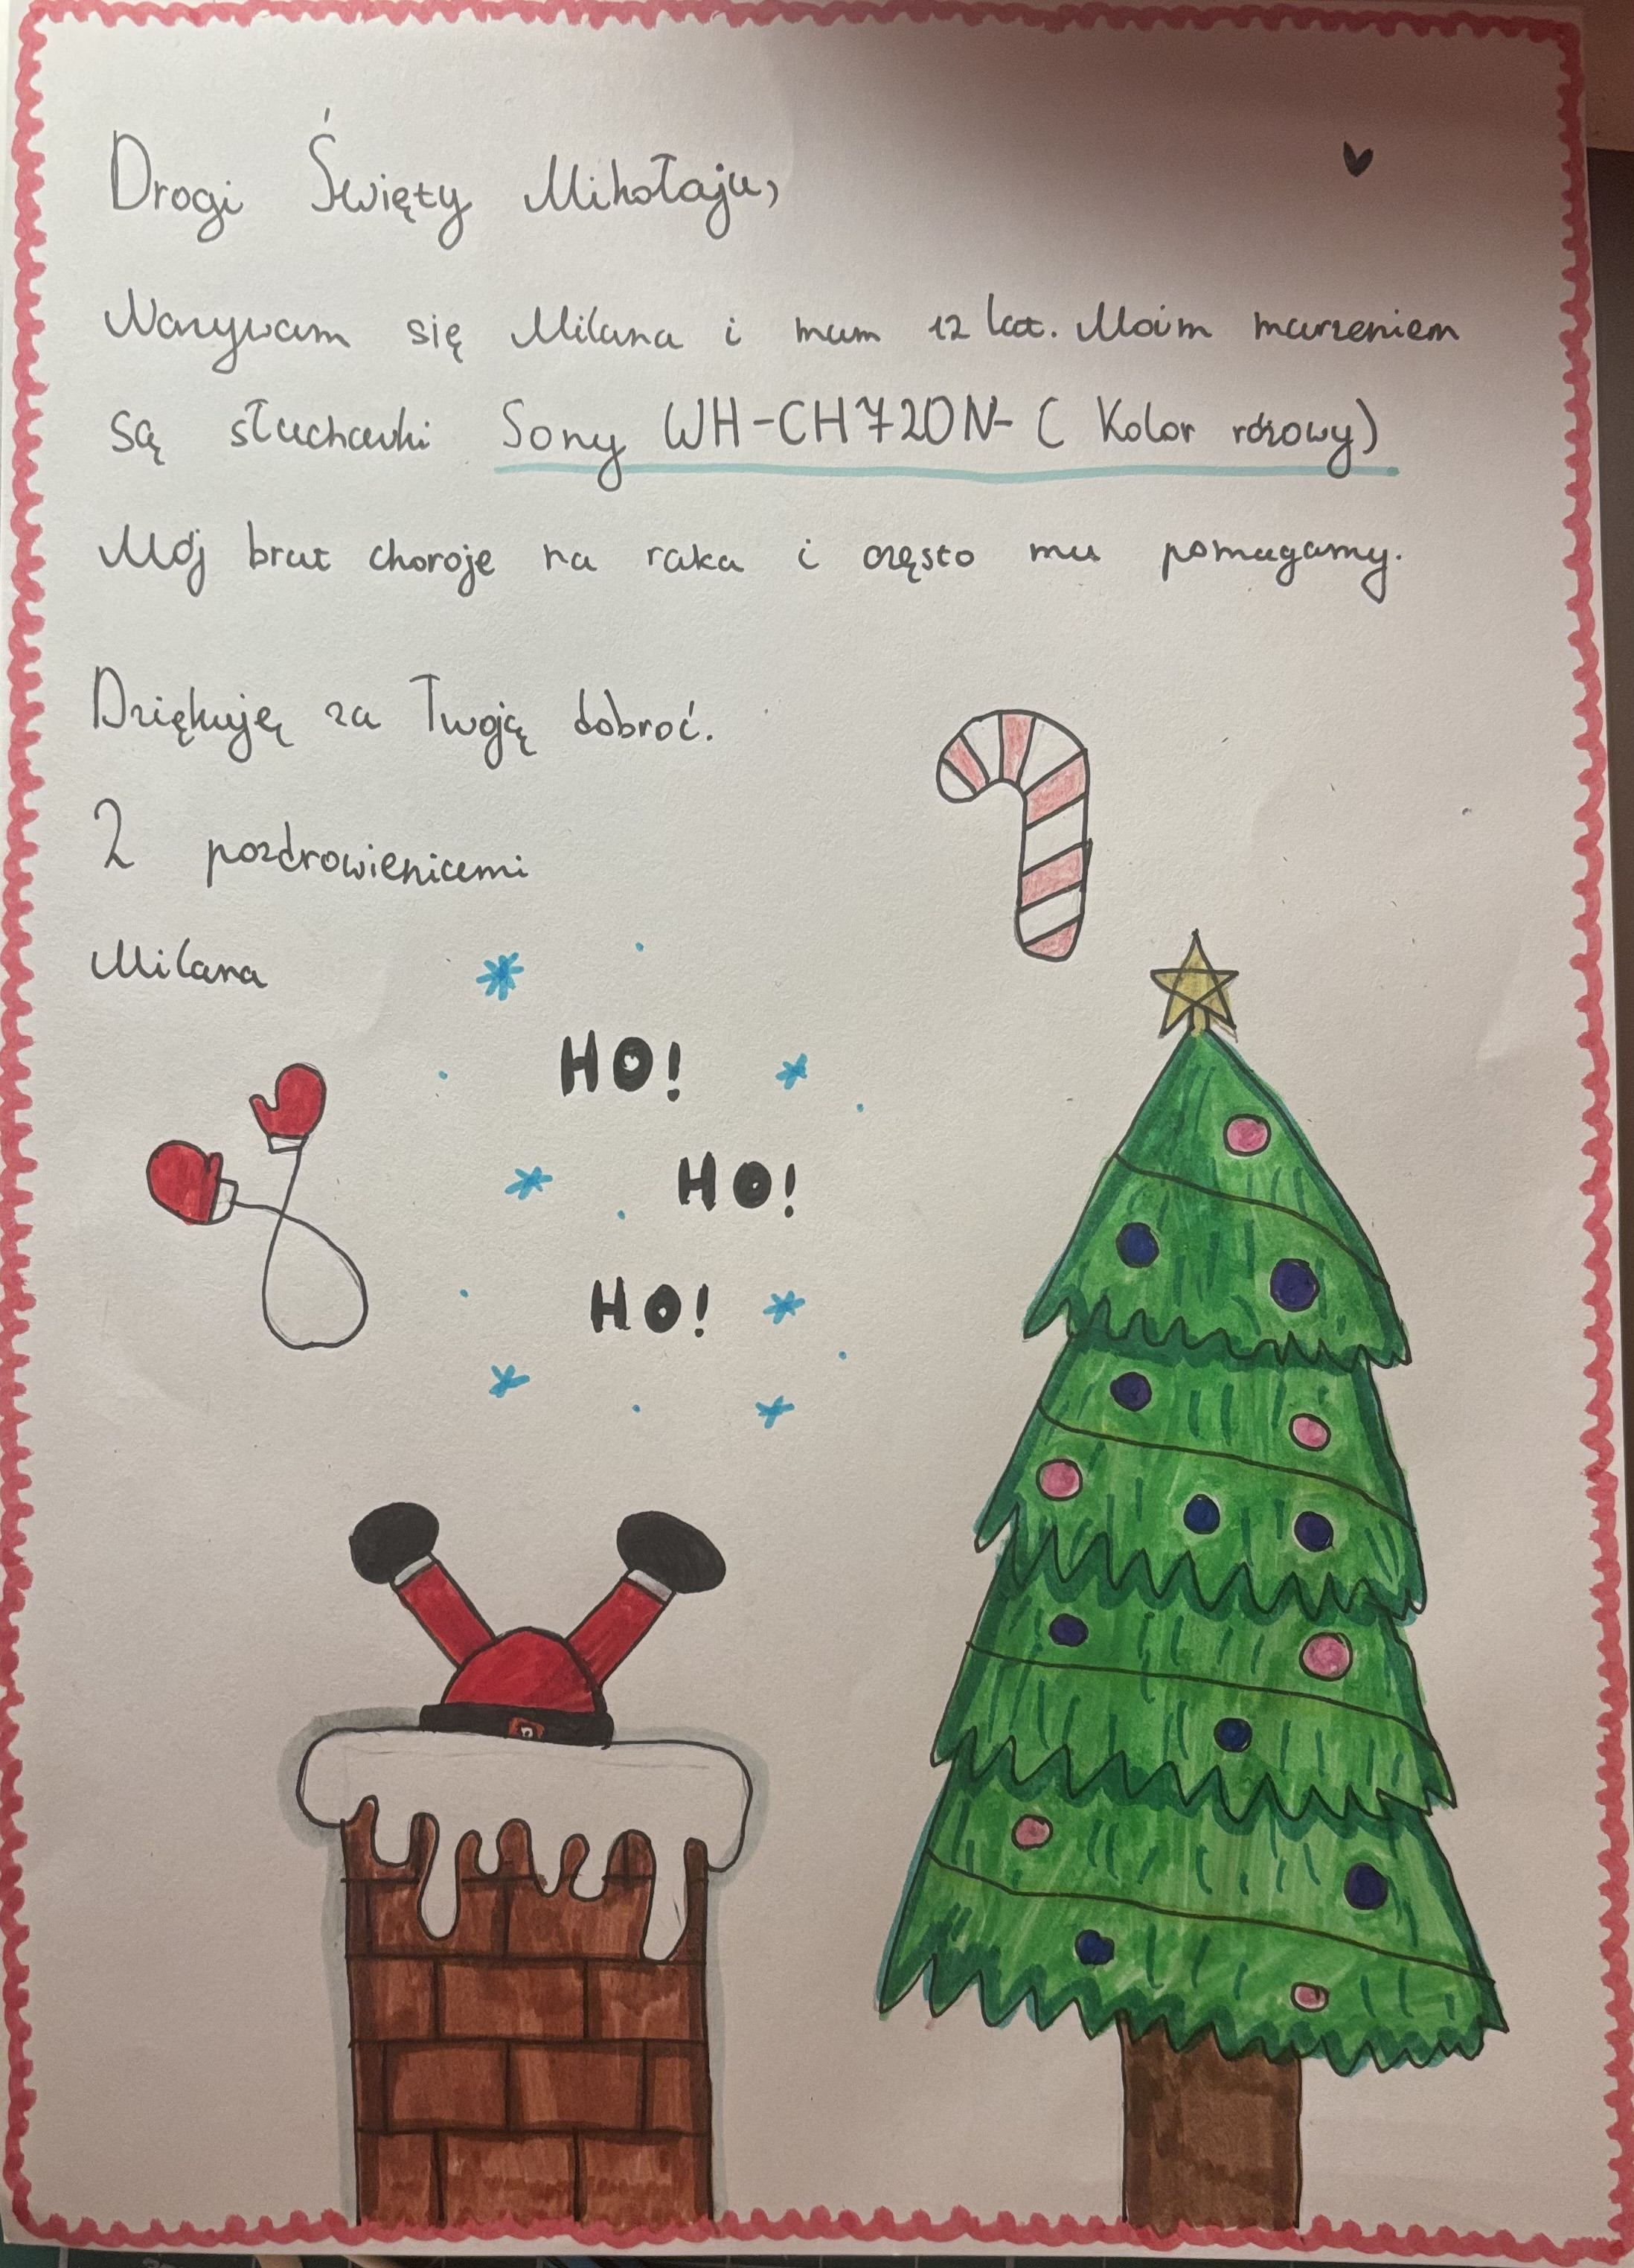 Drogi Święty Mikołaju,
Nazywam się Milana i mam 12 lat. Moim marzeniem
są słuchawki Sony WH-CH720N- ( Kolor różowy)
Mój brat choroje na raka i często mu pomagamy.
Dziękuję za Twoją dobroć.
Z pozdrowieniami
Milana
HO!
HO!
HO!